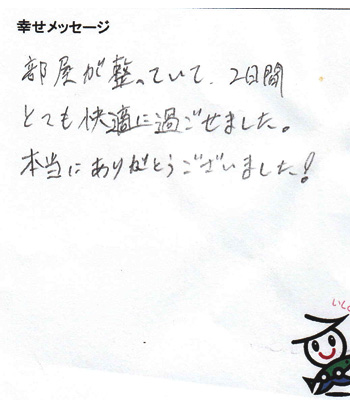 幸せメッセージ
部屋が整っていて、2日間
とても快適に過ごせました。
本当にありがとうございました!